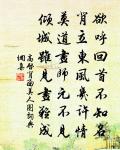 欲呼回首不知名
背立東風幾許情
莫道畫師元不見
傾城雖見畫難成
高啓背面美人圖詞典
網集